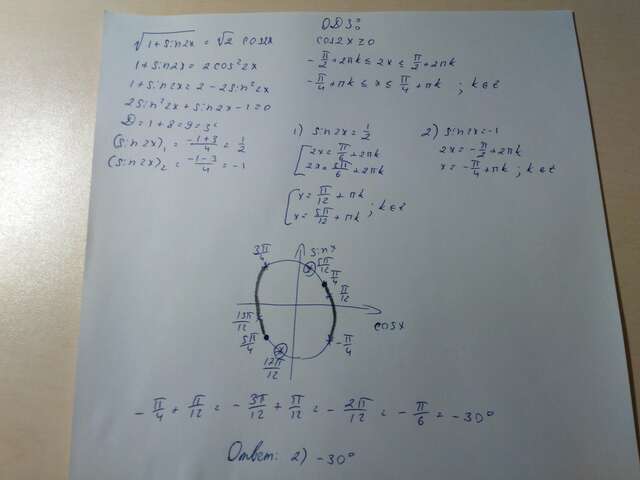 √(1+sin2x) = √2 cos2x
1+sin2x = 2cos²2x
1+sin2x = 2-2sin²2x
2sin²2x+sin2x-1=0
D=1+8=9=3²
(sin2x)₁ = (-1+3)/4 = 1/2
(sin2x)₂ = (-1-3)/4 = -1
ОДЗ:
cos2x≥0
-π/2+2πk ≤ 2x ≤ π/2+2πk
-π/4+πk ≤ x ≤ π/4+πk ; k∈Z
1) sin2x=1/2
[2x=π/6+2πk
2x=5π/6+2πk
[x=π/12+πk
x=5π/12+πk ; k∈Z
2) sin2x=-1
2x=-π/2+2πk
x=-π/4+πk; k∈Z
sinx
3π/4
5π/12
π/4
π/12
cosx
13π/12
5π/4
-π/4
17π/12
-π/4+π/12=-3π/12+π/12=-2π/12=-π/6=-30°
Ответ: 2) -30°